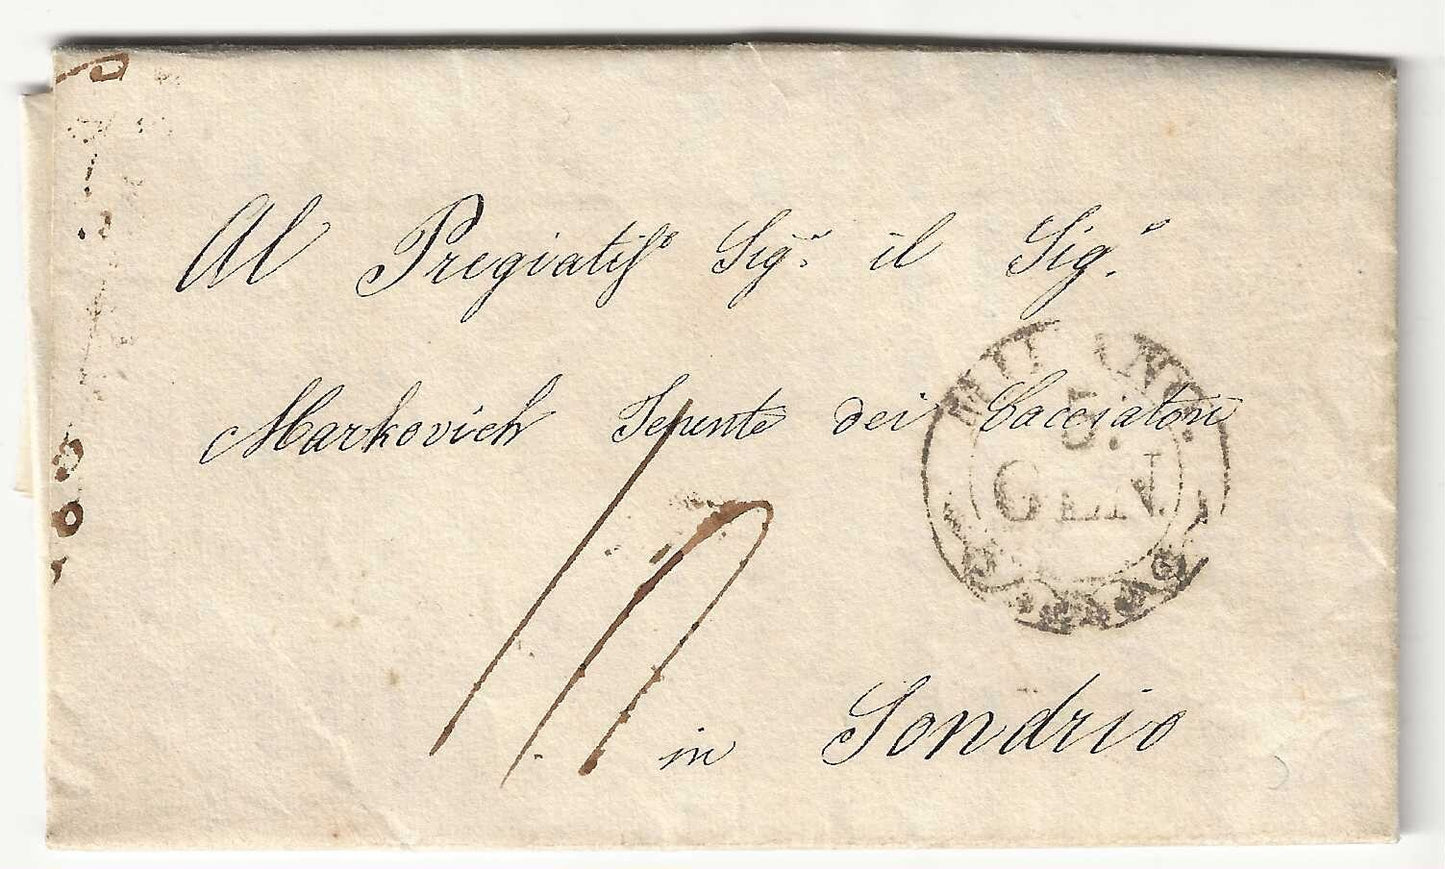 Al Pregiatisſo Sigr. il Sig.r
Markovich Tenente dei Cacciatori
MILANO
5.
GEN.
in Sondrio